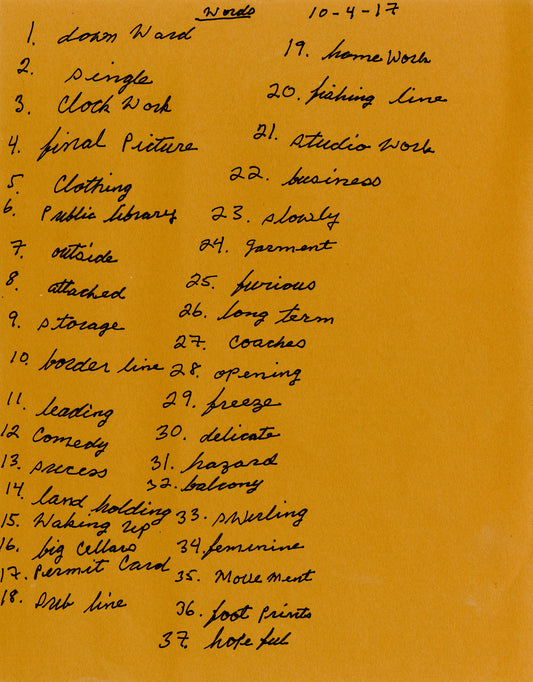 Words 10-4-17
1. down Ward
2. single
3. Clock Work
4. final Picture
5. Clothing
6. Public library
7. outside
8. attached
9. storage
10. border line
11. leading
12 Comedy
13. success
14. land holding
15. Waking up
16. big Cellars
17. Permit Card
18. sub line
19. home Work
20. fishing line
21. studio Work
22. business
23. slowly
24. garment
25. furious
26. long term
27. Coaches
28. opening
29. freeze
30. delicate
31. hazard
32. balcony
33. swirling
34. feminine
35. Move Ment
36. foot Prints
37. hope ful